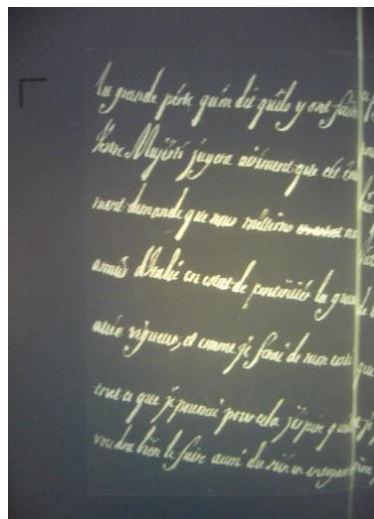 la grande perte qu'on dit qu'ils y ont faite
Vostre Majesté jugera aisement que cet
ment demande que nous mettions nos
armées d'Italie en estat de continüer la guerre
avec vigueur, et comme je feray de mon costé
tout ce que je pourrai pour cela j'espere que
voudra bien le faire aussi du sien en envoyant